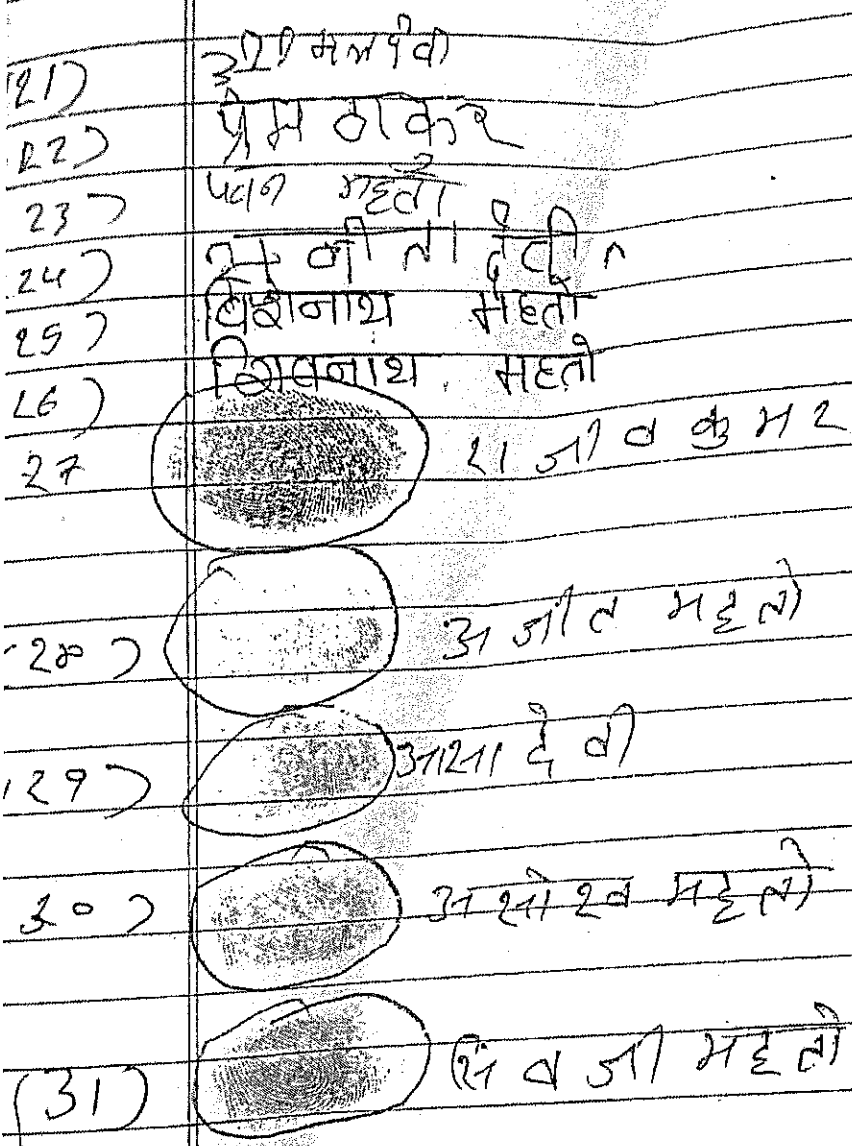 21)
22) प्रेम ठाकुर
23) पवन महतो
24) सुनीता देवी
25) विशनाथ महतो
26) शिवनाथ महतो
27 राजीव कुमर
28) अजीत महतो
29) आशा देवी
30) महतो
(31) सिवजी महतो